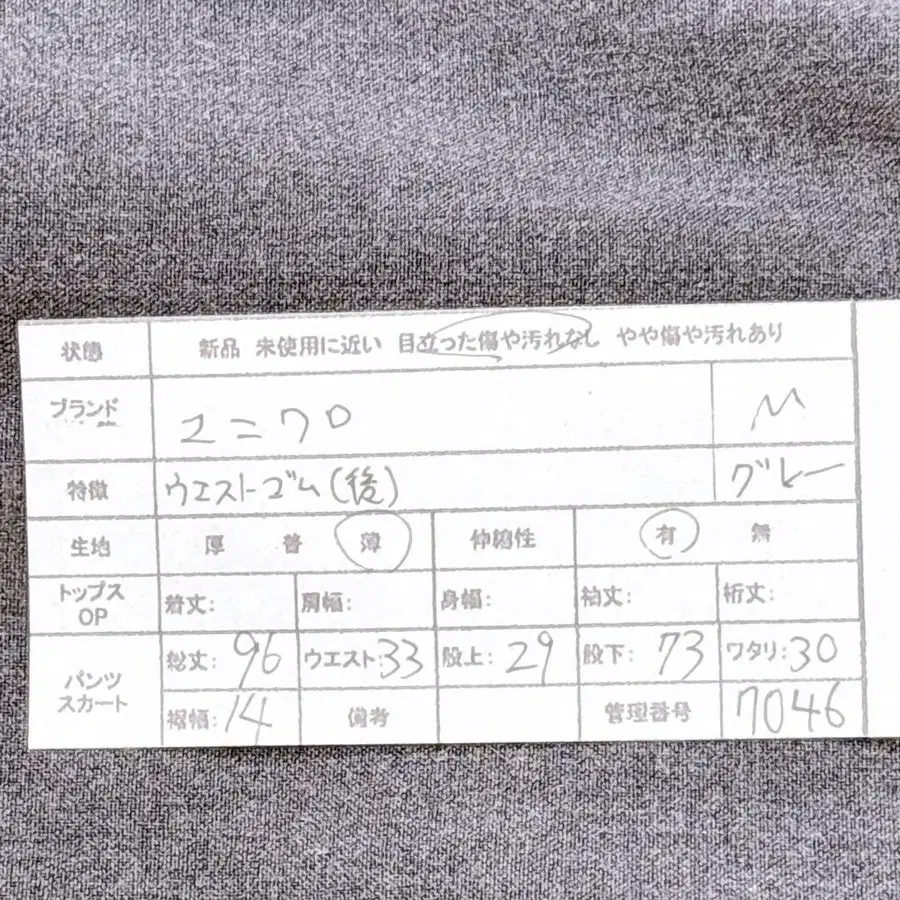 状態 新品 未使用に近い 目立った傷や汚れなし やや傷や汚れあり
ブランド ユニクロ M
特徴 ウエストゴム(後) グレー
生地 厚 普 薄 伸縮性 有 無
トップス OP 着丈: 肩幅: 身幅: 袖丈: 裄丈:
パンツ スカート 総丈: 96 ウエスト: 33 股上: 29 股下: 73 ワタリ: 30
裾幅: 14 備考 管理番号 7046